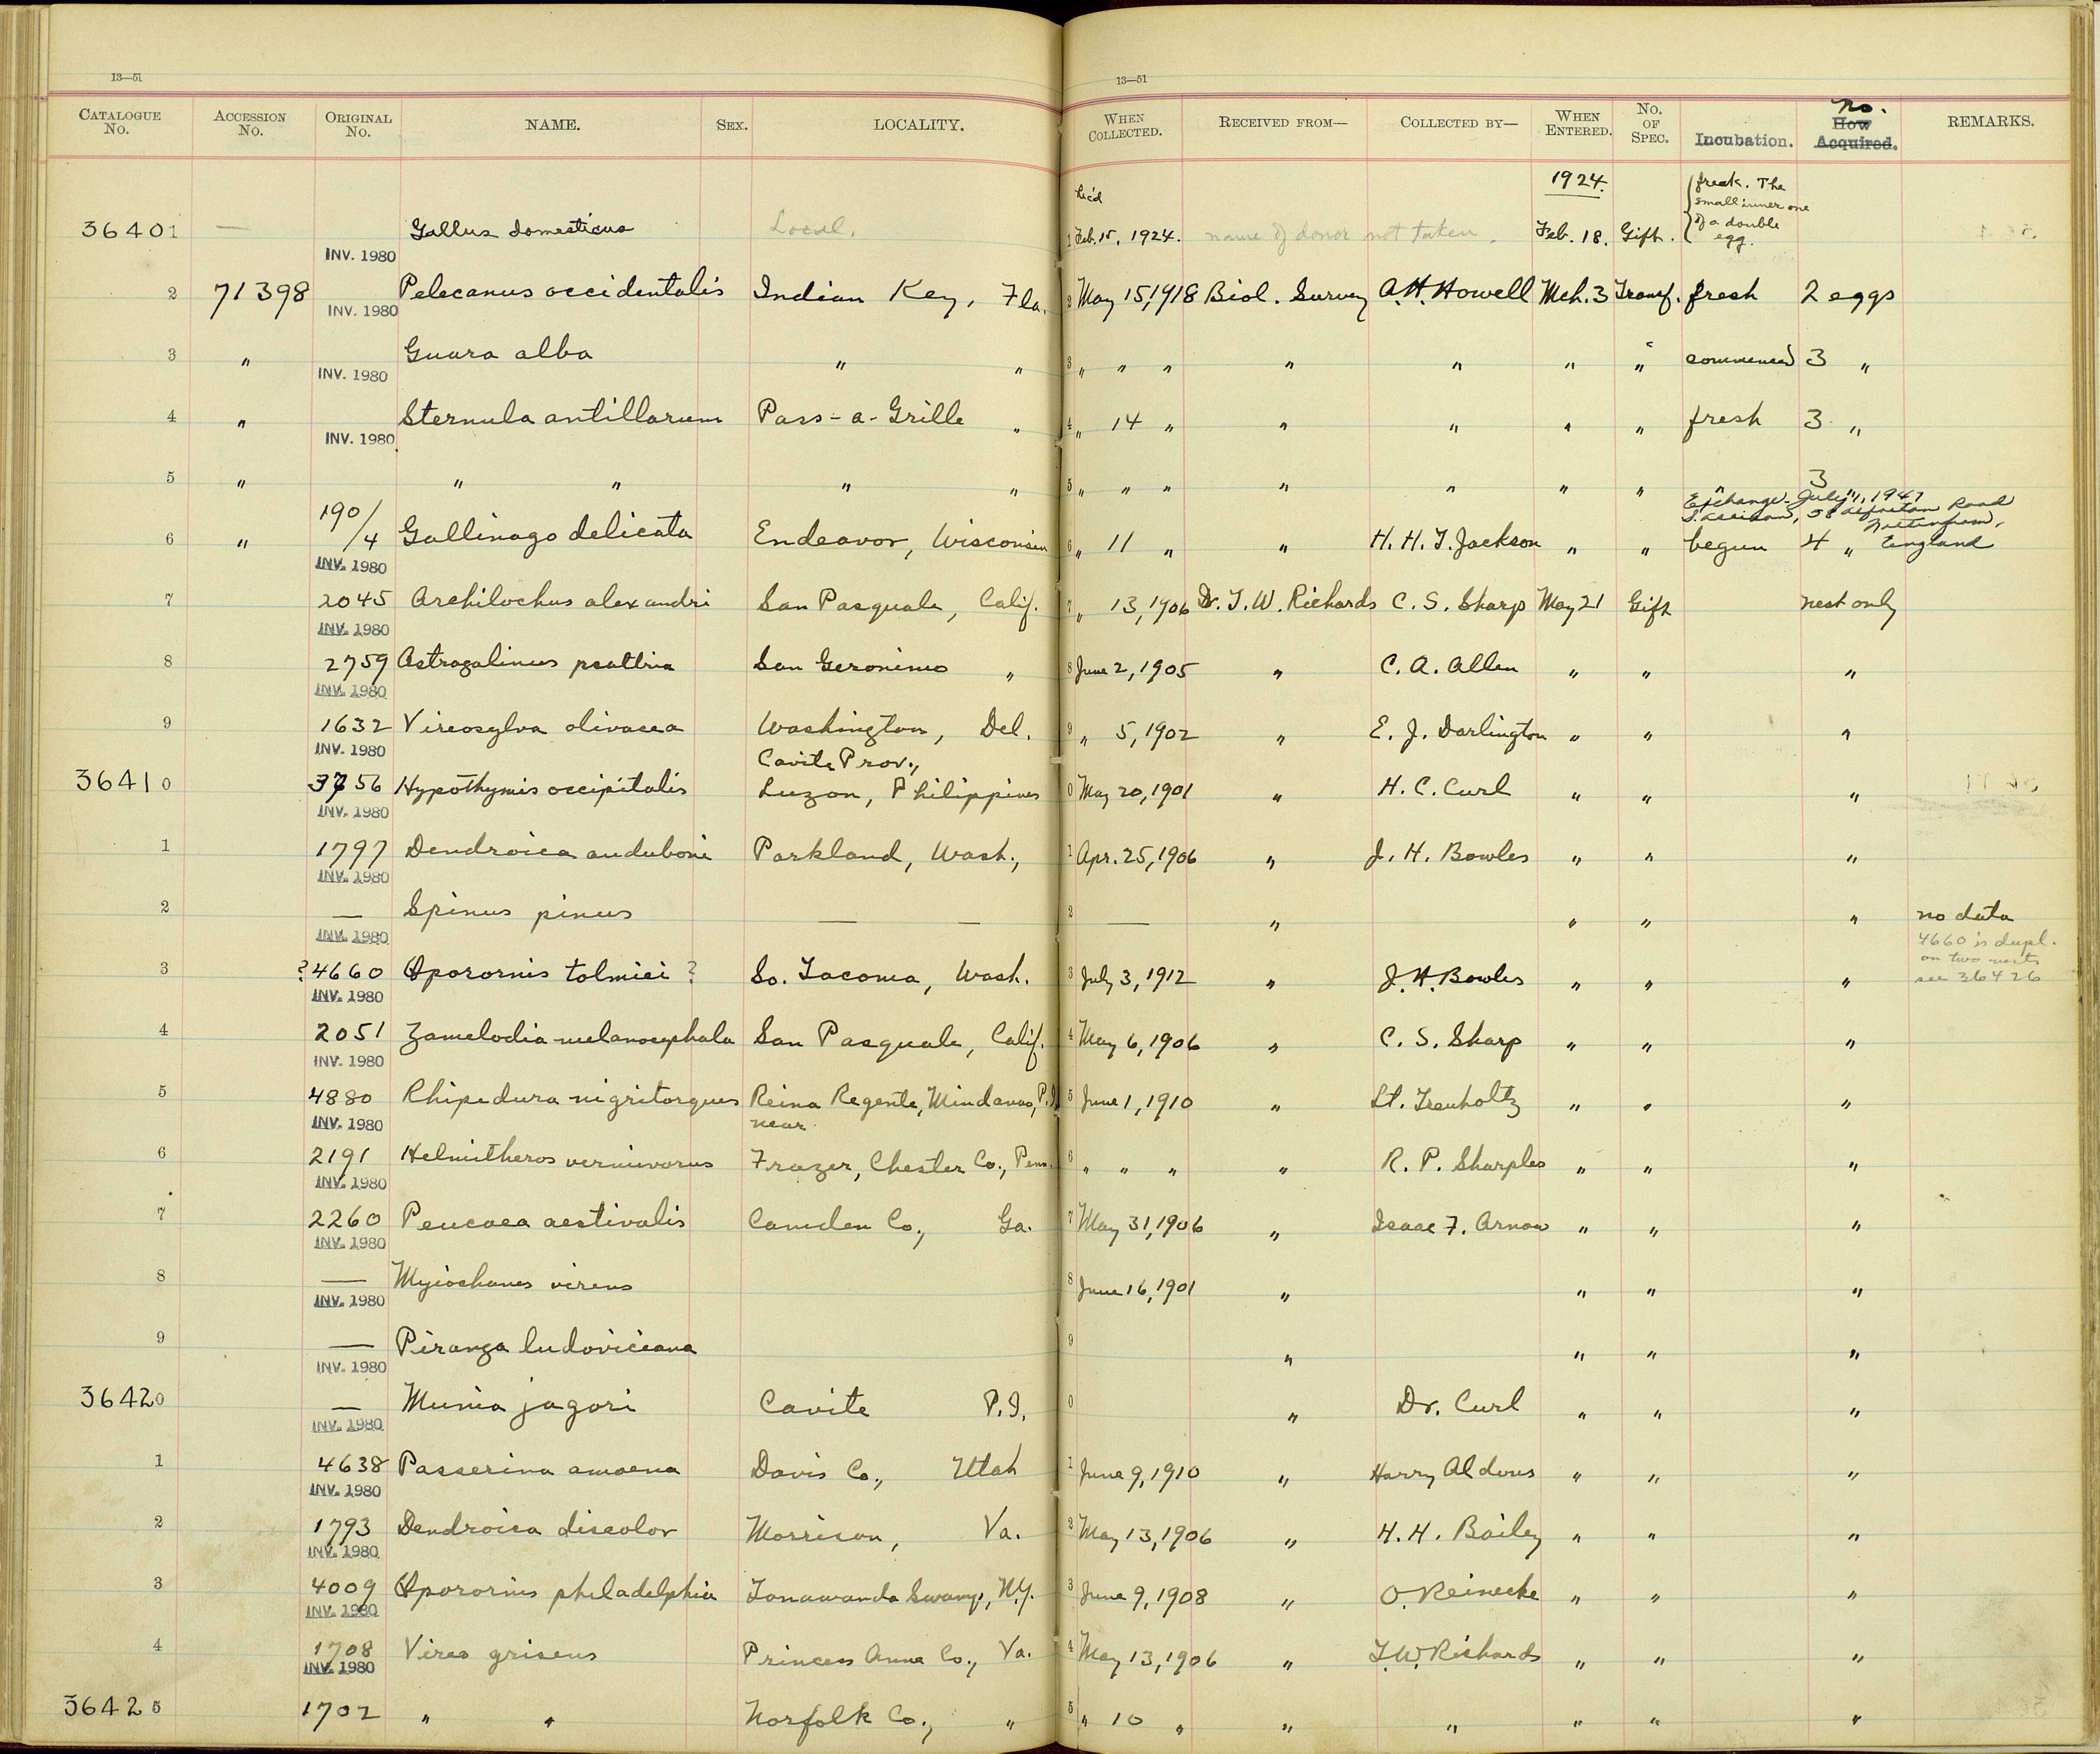 13—51 13—51
CATALOGUE No. ACCESSION No. ORIGINAL No. NAME. SEX. LOCALITY. WHEN COLLECTED. RECEIVED FROM— COLLECTED BY— WHEN ENTERED. No. OF SPEC. Incubation. No. How Acquired. REMARKS.
1924.
36401 — INV. 1980 Gallus domesticus Local. 1 Rec'd Feb. 15, 1924. name of donor not taken. Feb. 18. Gift. freak. The small inner one of a double egg.
2 71398 INV. 1980 Pelecanus occidentalis Indian Key, Fla. 2 May 15, 1918 Biol. Survey A.H. Howell Mch. 3 Transf. fresh 2 eggs
3 " INV. 1980 Guara alba " " 3 " " " " " " " commenced 3 "
4 " INV. 1980 Sternula antillarum Pass-a-Grille " 4 " 14 " " " " " fresh 3 "
5 " " " " " 5 " " " " " " " " 3 "
Exchange July 11, 1947
Road
Nottingham,
England
6 " 190/4 INV. 1980 Gallinago delicata Endeavor, Wisconsin 6 " 11 " " H. H. T. Jackson " " begun 4 "
7 2045 INV. 1980 Archilochus alexandri San Pasquale, Calif. 7 " 13, 1906 Dr. T. W. Richards C. S. Sharp May 21 Gift nest only
8 2759 INV. 1980 Astragalinus psaltria San Geronimo " 8 June 2, 1905 " C. A. Allen " " "
9 1632 INV. 1980 Vireosylva olivacea Washington, Del. 9 " 5, 1902 " E. J. Darlington " " "
36410 3756 INV. 1980 Hypothymis occipitalis Cavite Prov., Luzon, Philippines 0 May 20, 1901 " H. C. Curl " " "
1 1797 INV. 1980 Dendroica auduboni Parkland, Wash., 1 Apr. 25, 1906 " J. H. Bowles " " "
2 — INV. 1980 Spinus pinus — — 2 — " " " " no data
3 ? 4660 INV. 1980 Oporornis tolmiei ? So. Tacoma, Wash. 3 July 3, 1912 " J. H. Bowles " " " 4660 is dupl. on two nests see 36426
4 2051 INV. 1980 Zamelodia melanocephala San Pasquale, Calif. 4 May 6, 1906 " C. S. Sharp " " "
5 4880 INV. 1980 Rhipidura nigritorques Reina Regente, Mindanao, P.I. 5 June 1, 1910 " Lt. Trenholtz " " "
6 2191 INV. 1980 Helmitheros vermivorus near Frazer, Chester Co., Penn. 6 " " " " R. P. Sharples " " "
7 2260 INV. 1980 Peucaea aestivalis Camden Co., Ga. 7 May 31, 1906 " Isaac F. Arnow " " "
8 — INV. 1980 Myiochanes virens 8 June 16, 1901 " " " "
9 — INV. 1980 Piranga ludoviciana 9 " " " "
36420 — INV. 1980 Munia jagori Cavite P.I. 0 " Dr. Curl " " "
1 4638 INV. 1980 Passerina amoena Davis Co., Utah 1 June 9, 1910 " Harry Aldous " " "
2 1793 INV. 1980 Dendroica discolor Morrison, Va. 2 May 13, 1906 " H. H. Bailey " " "
3 4009 INV. 1980 Oporornis philadelphia Tonawanda Swamp, N.Y. 3 June 9, 1908 " O. Reinecke " " "
4 1708 INV. 1980 Vireo griseus Princess Anne Co., Va. 4 May 13, 1906 " T.W. Richards " " "
36425 1702 " " Norfolk Co., " 5 " 10 " " " " " "